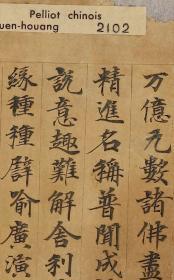 Pelliot chinois
uen-houang 2102
万億无數諸佛盡
精進名稱普聞成
說意趣難解舍利
緣種種譬喻廣演